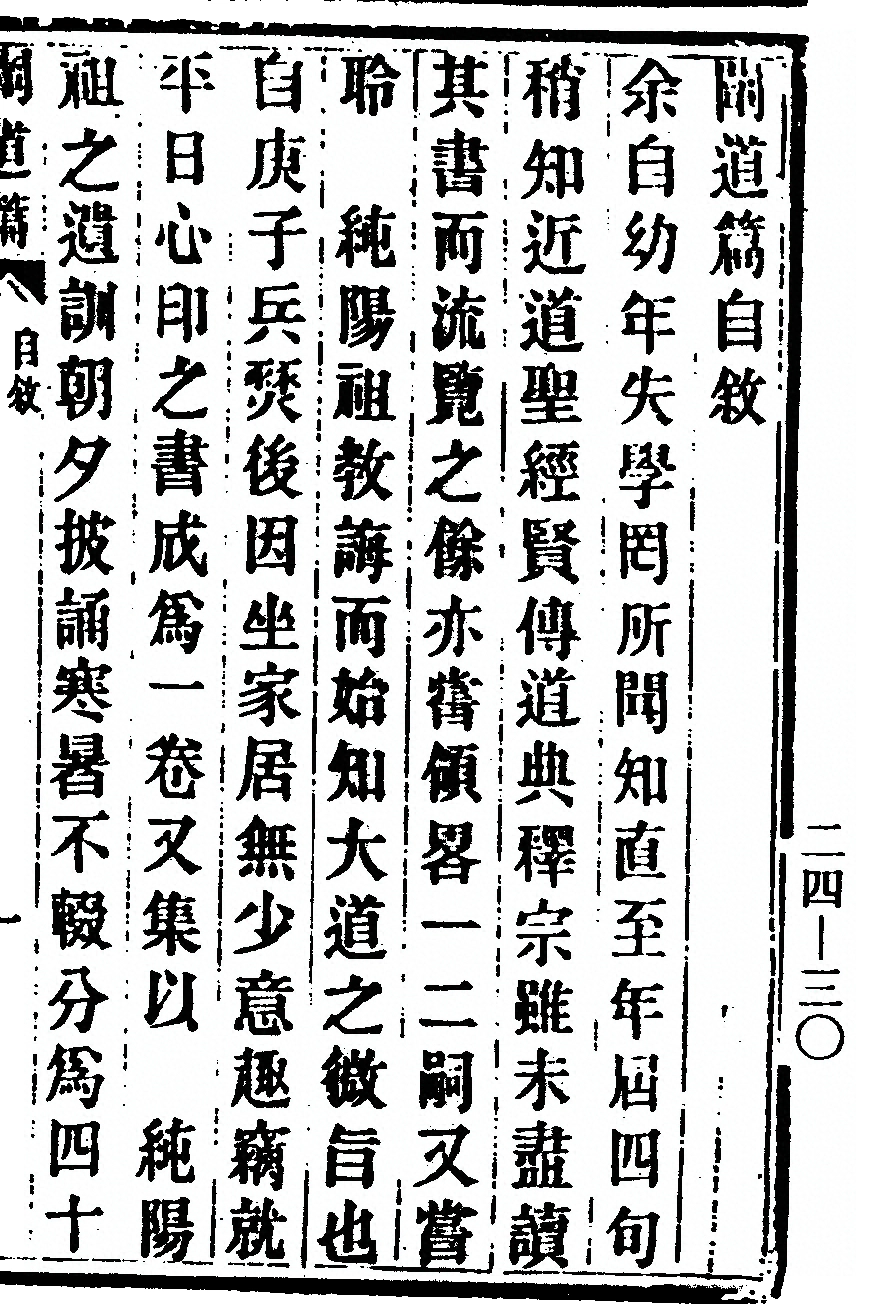 闡道篇自敘
余自幼年失學罔所聞知直至年屆四旬
稍知近道聖經賢傳道典釋宗雖未盡讀
其書而流覽之餘亦嘗領畧一二嗣又嘗
聆　純陽祖教誨而始知大道之微旨也
自庚子兵燹後因坐家居無少意趣竊就
平日心印之書成爲一卷又集以　純陽
祖之遺訓朝夕披誦寒暑不輟分爲四十
闡道篇　自敘　一
二四—三〇